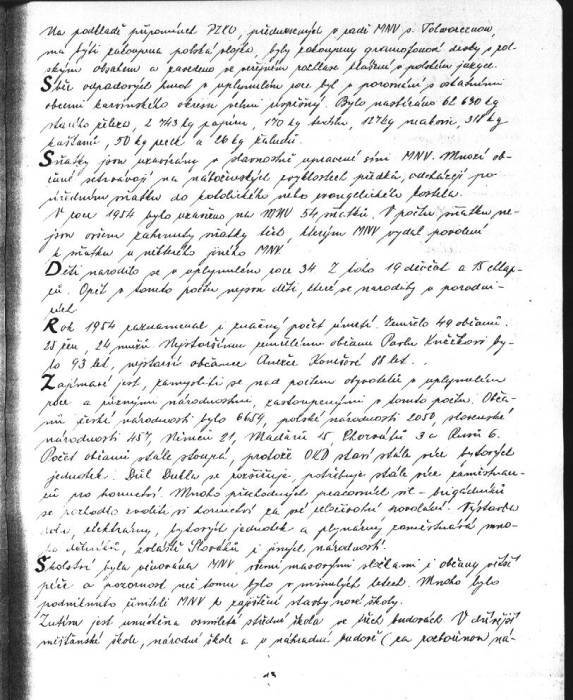 Na podkladě připomínek PZKO, přednesených v radě MNV s. Tolwarzenou,
má býti zakoupena polská vlajka, byly zakoupeny gramofonové desky s pol-
ským obsahem a zavedeno ve veřejném rozhlase hlášení v polském jazyce.
Sběr odpadových hmot v uplynulém roce byl v porovnání s ostatními
obcemi karvinského okresu velmi úspěšný. Bylo nasbíráno 62 630 kg
starého železa, 2 743 kg papíru, 170 kg textilu, 127 kg makovic, 318 kg
kaštanů, 50 kg pecek a 26 kg žaludů.
Sňatky jsou uzavírány v slavnostně upravené síni MNV. Mnozí ob-
čané setrvávají na náboženských zvyklostech předků, odcházejí po
úředním sňatku do katolického nebo evangelického kostela.
V roce 1954 bylo uzavřeno na MNV 54 sňatků. V počtu sňatků ne-
jsou ovšem zahrnuty sňatky těch, kterým MNV vydal povolení
k sňatku u některého jiného MNV.
Dětí narodilo se v uplynulém roce 34. Z toho 19 děvčat a 15 chlap-
ců. Opět v tomto počtu nejsou děti, které se narodily v porodni-
cích.
Rok 1954 zaznamenal i značný počet úmrtí. Zemřelo 49 občanů.
25 žen, 24 mužů. Nejstaršímu zemřelému občanu Pavlu Kněžkovi by-
lo 93 let, nejstarší občance Anežce 88 let.
Zajímavé jest, zamyslit-li se nad počtem obyvatelů v uplynulém
roce a různými národnostmi, zastoupenými v tomto počtu. Obča-
nů české národnosti bylo 6654, polské národnosti 2050, slovenské
národnosti 457, Němců 21, Maďarů 15, Chorvatů 3 a Rusů 6.
Počet občanů stále stoupá, protože OKD staví stále více bytových
jednotek. Důl Dukla se rozšiřuje, potřebuje stále více zaměstnan-
ců pro hornictví. Mnoho přechodných pracovních sil - brigádníků
se rozhodlo zvolit si hornictví za své celoživotní povolání. Výstavba
dolu, elektrárny, bytových jednotek a plynárny zaměstnává mno-
ho dělníků, zvláště Slováků i jiných národností.
Školství byla věnována MNV, všemi masovými složkami i občany větší
péče a pozornost než tomu bylo v minulých letech. Mnoho bylo
podniknuto úmilí MNV k zajištění stavby nové školy.
Zatím jest umístěna osmiletá střední škola ve třech budovách. V dřívější
měšťanské škole, národní škole a v náhradní budově (za rozbořenou ná-